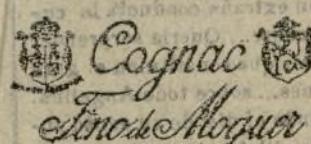 Cognac
Fino de Moguer